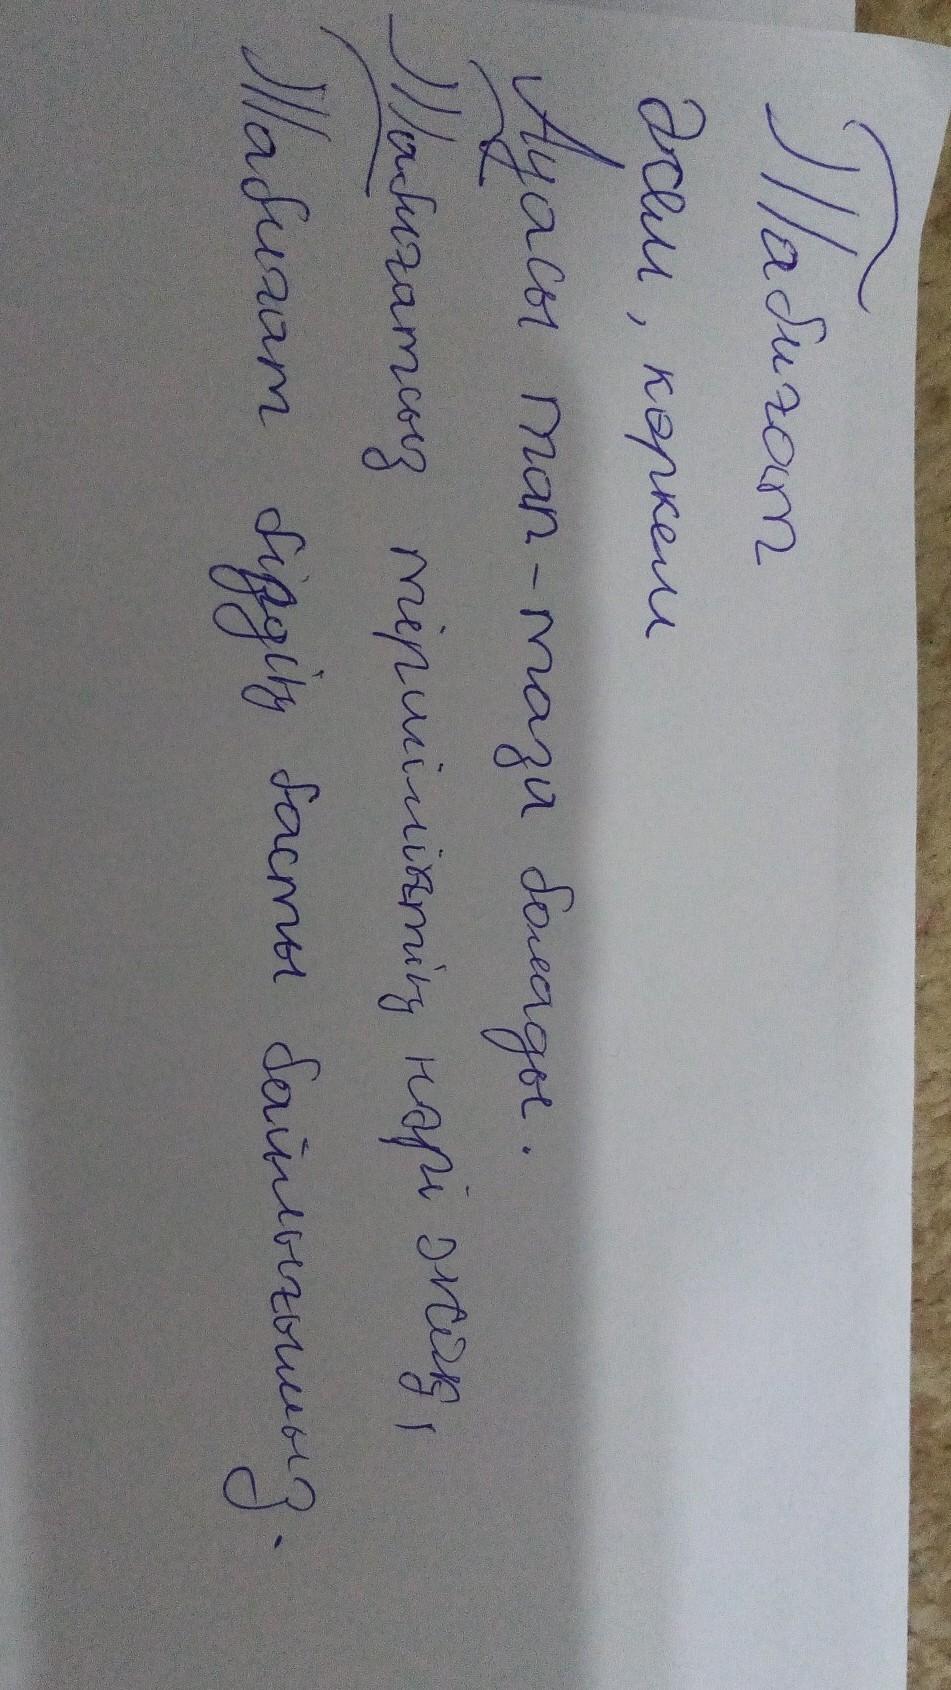 Табиғат
әсем, көркем
Ауасы тап-таза болады.
Табиғатсыз тіршіліктің нәрі жоқ,
Табиғат біздің басты байлығымыз.